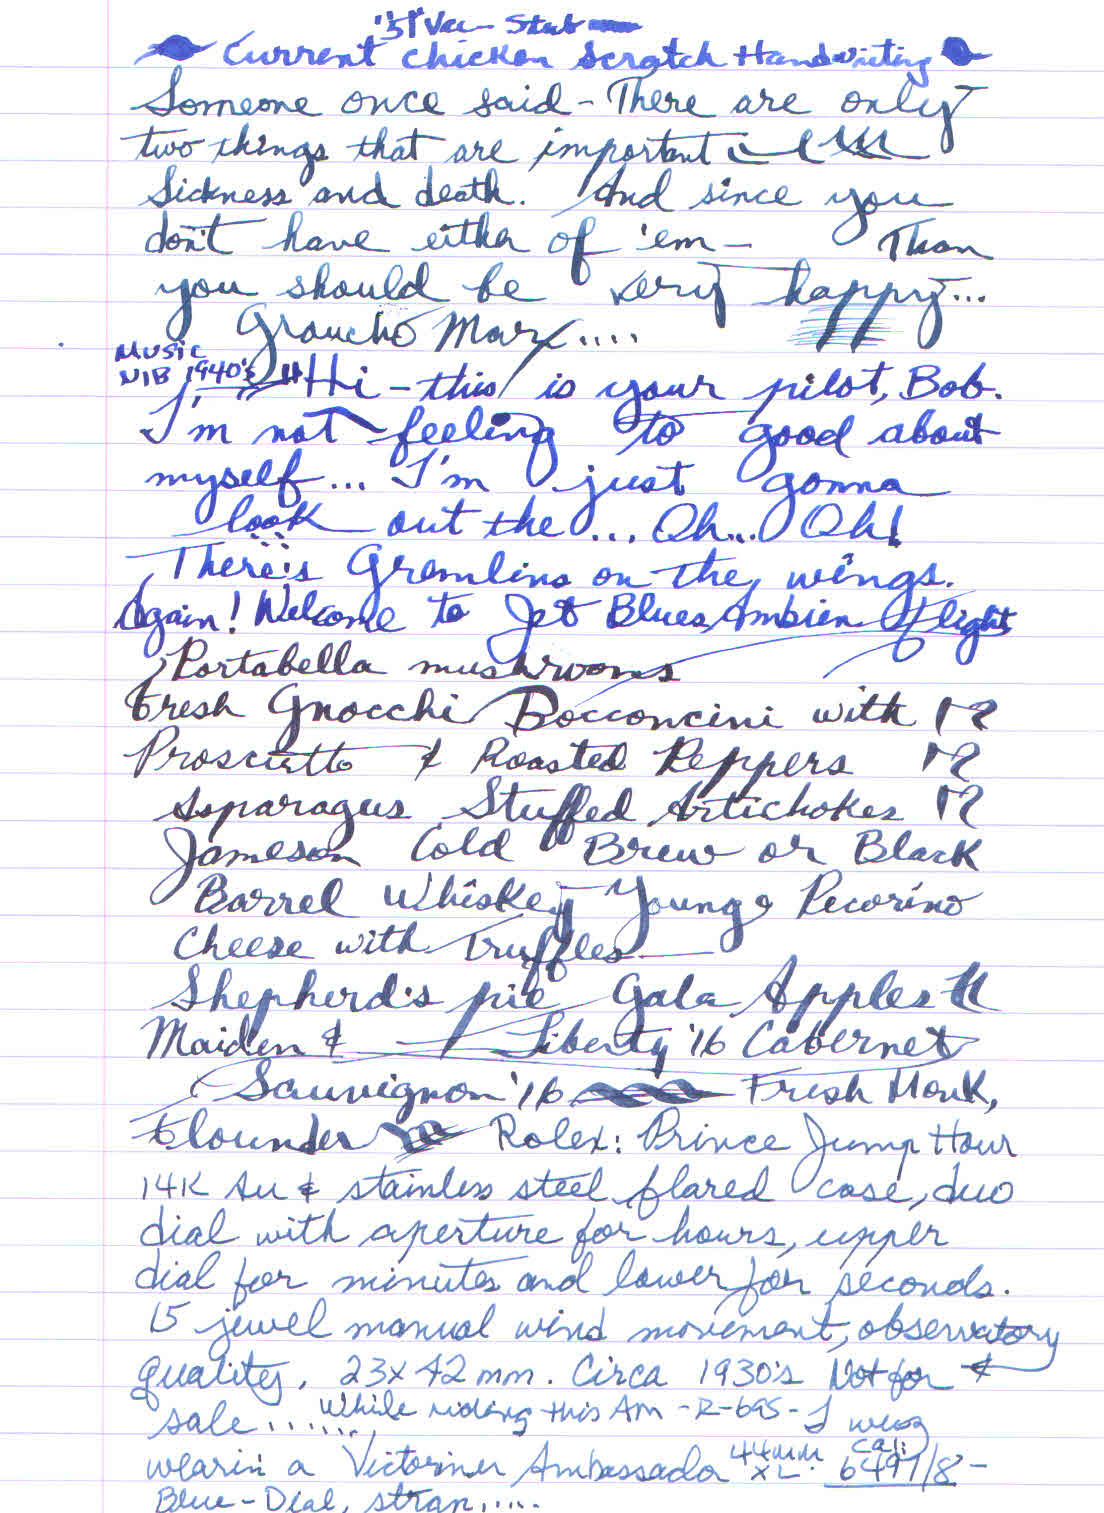 '51 Vac - Stub
Current Chicken Scratch Handwriting
Someone once said - There are only
two things that are important
Sickness and death. And since you
don't have either of 'em - Than
you should be very happy...
Groucho Marx....
Music
NIB 1940's "Hi - this is your pilot, Bob.
I'm not feeling to good about
myself... I'm just gonna
look out the... Oh... Oh!
There's Gremlins on the wings.
Again! Welcome to Jet Blues Ambien flight
Portabella mushrooms
Fresh Gnocchi Bocconcini with
Prosciutto & Roasted Peppers
Asparagus Stuffed Artichokes
Jameson Cold Brew or Black
Barrel Whiskey Young Pecorino
Cheese with Truffles
Shepherd's pie Gala Apples
Maiden & Liberty '16 Cabernet
Sauvignon '16 Fresh Monk,
flounder Rolex: Prince Jump Hour
14K Au & stainless steel flared case, duo
dial with aperture for hours, upper
dial for minutes and lower for seconds.
15 jewel manual wind movement, observatory
quality, 23x42 mm. Circa 1930's Not for
sale...... While riding this Am - R-69S - I was
wearin a Ambassador 44mm XL. cal: 6497/8 -
Blue - Dial,